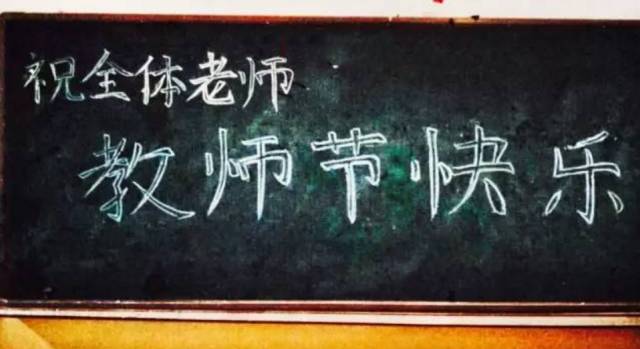 祝全体老师
教师节快乐